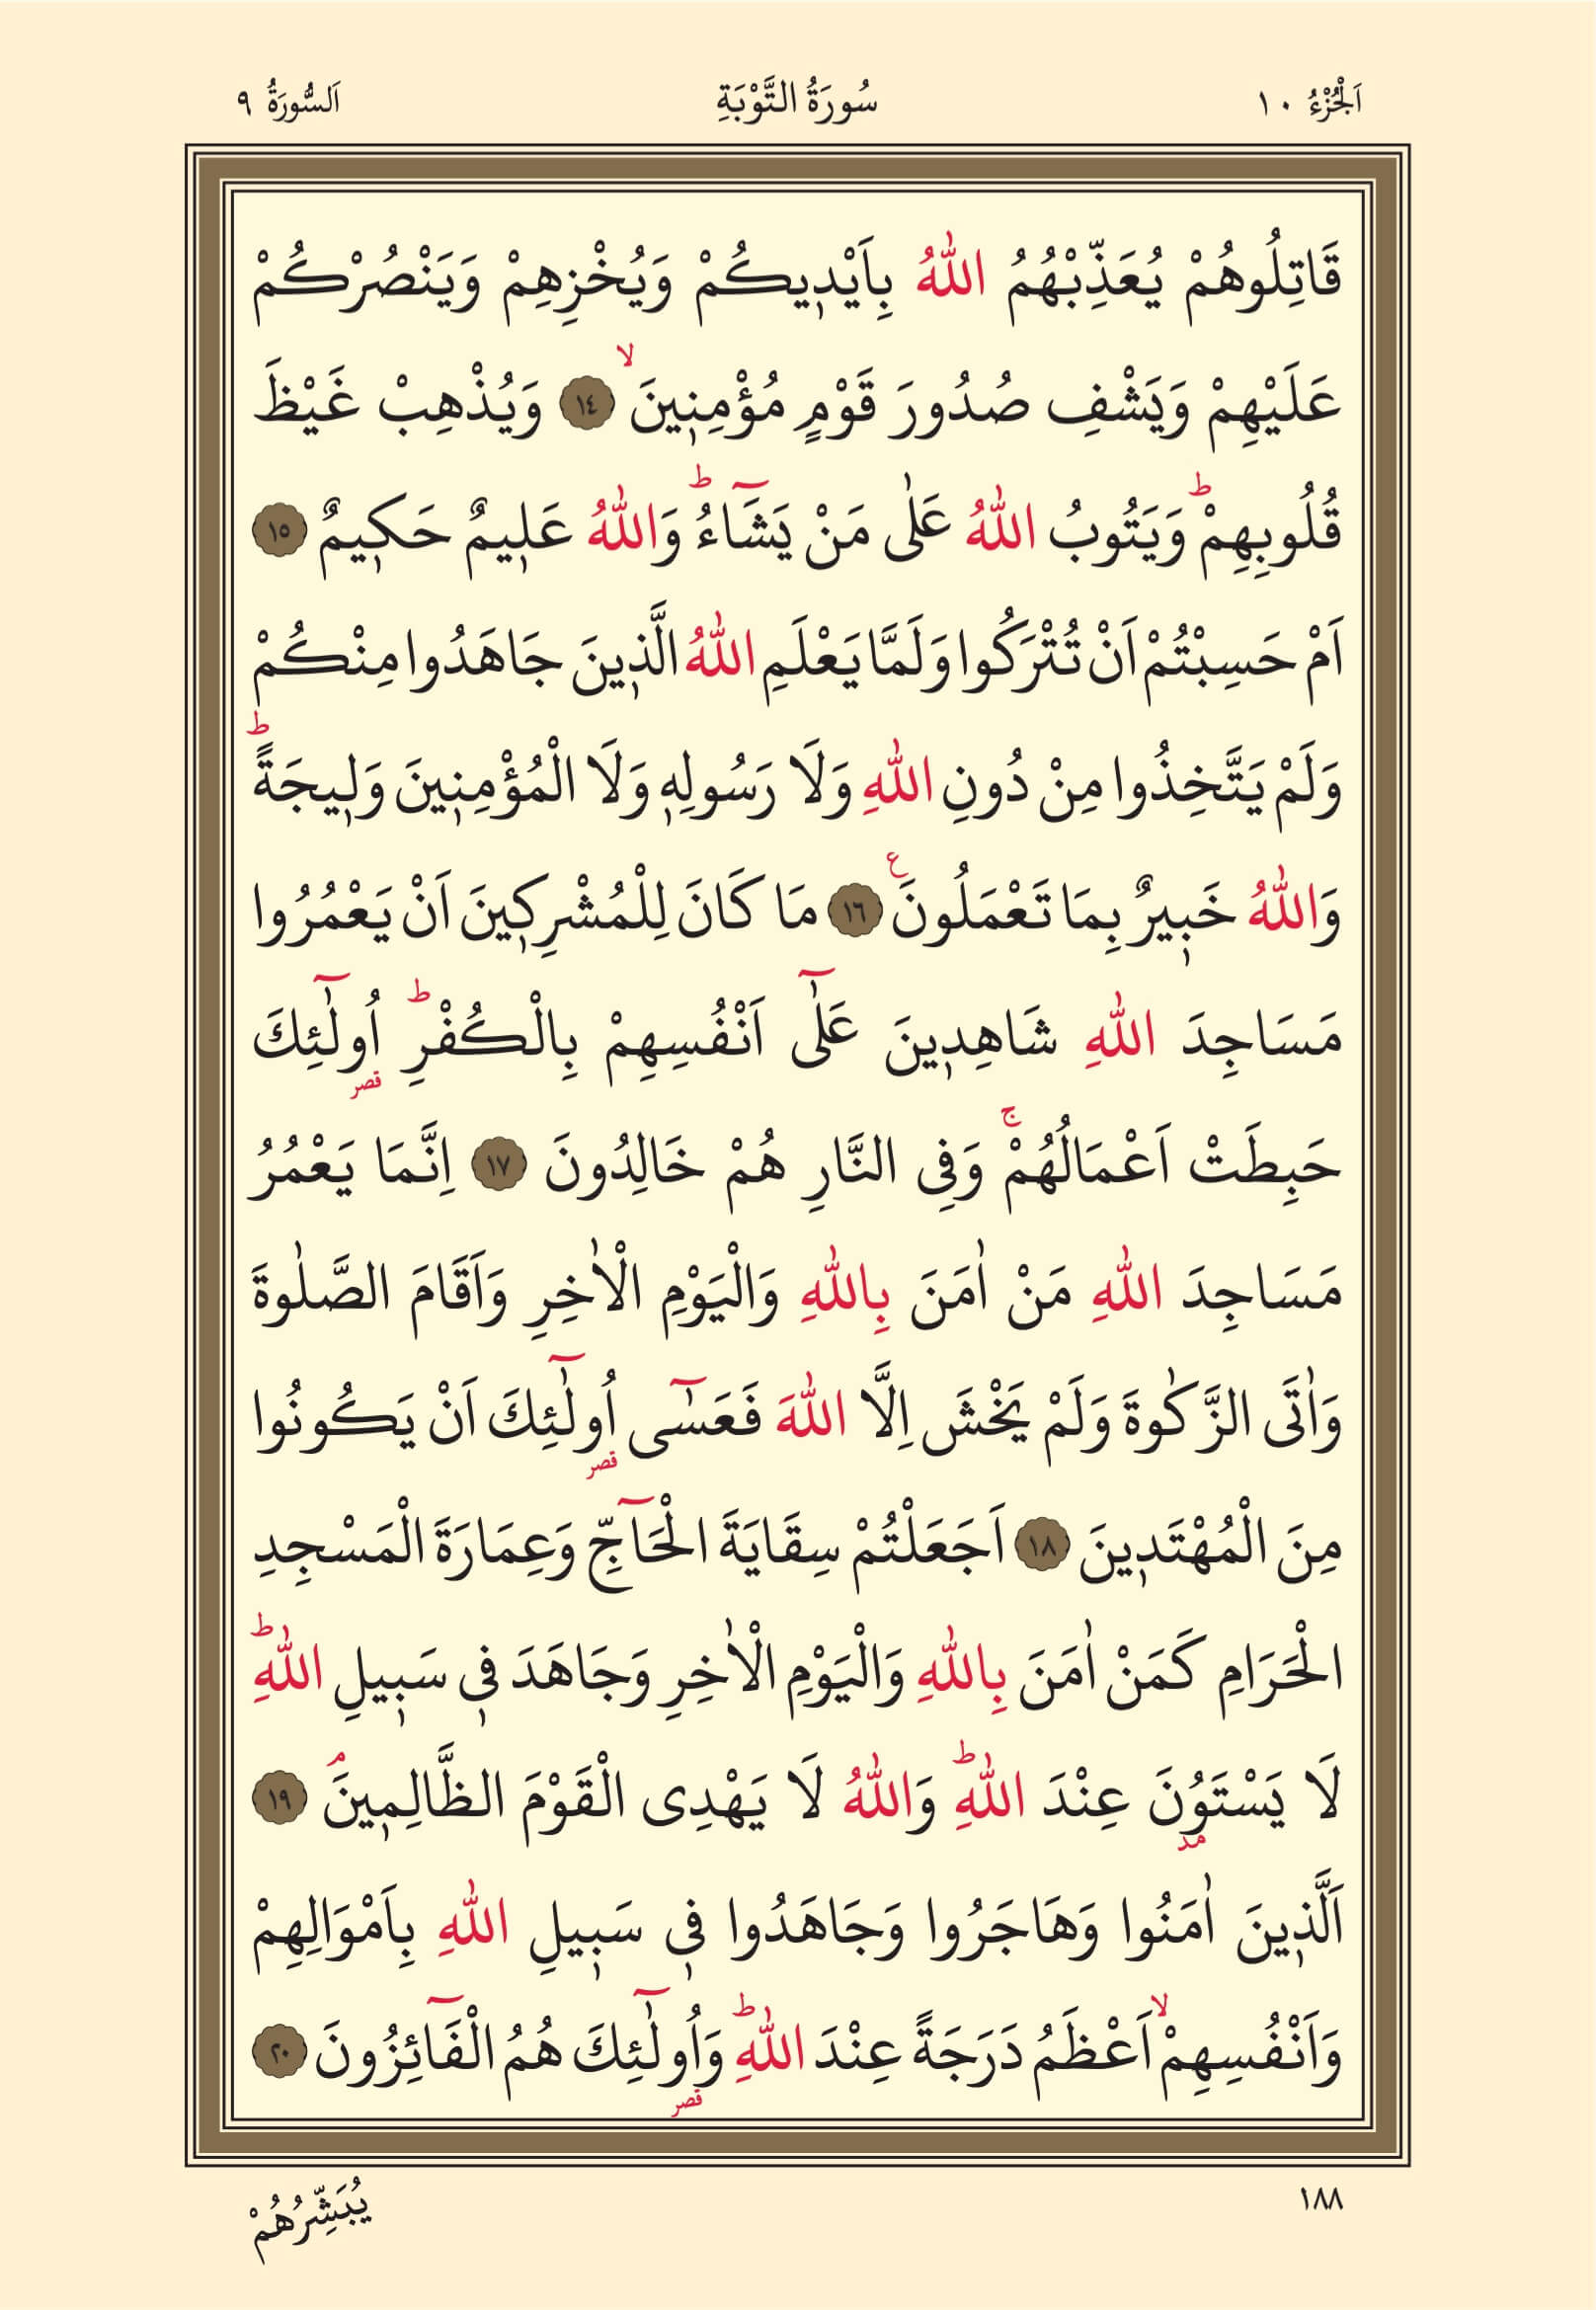 اَلْجُزْءُ ١٠ سُورَةُ التَّوْبَةِ اَلسُّورَةُ ٩
قَاتِلُوهُمْ يُعَذِّبْهُمُ اللّٰهُ بِاَيْدٖيكُمْ وَيُخْزِهِمْ وَيَنْصُرْكُمْ
عَلَيْهِمْ وَيَشْفِ صُدُورَ قَوْمٍ مُؤْمِنٖينَۙ ﴿١٤﴾ وَيُذْهِبْ غَيْظَ
قُلُوبِهِمْؕ وَيَتُوبُ اللّٰهُ عَلٰى مَنْ يَشَٓاءُؕ وَاللّٰهُ عَلٖيمٌ حَكٖيمٌ ﴿١٥﴾
اَمْ حَسِبْتُمْ اَنْ تُتْرَكُوا وَلَمَّا يَعْلَمِ اللّٰهُ الَّذٖينَ جَاهَدُوا مِنْكُمْ
وَلَمْ يَتَّخِذُوا مِنْ دُونِ اللّٰهِ وَلَا رَسُولِهٖ وَلَا الْمُؤْمِنٖينَ وَلٖيجَةًؕ
وَاللّٰهُ خَبٖيرٌ بِمَا تَعْمَلُونَࣖ ﴿١٦﴾ مَا كَانَ لِلْمُشْرِكٖينَ اَنْ يَعْمُرُوا
مَسَاجِدَ اللّٰهِ شَاهِدٖينَ عَلٰٓى اَنْفُسِهِمْ بِالْكُفْرِؕ اُو۬لٰٓئِكَ قصر
حَبِطَتْ اَعْمَالُهُمْۚ وَفِى النَّارِ هُمْ خَالِدُونَ ﴿١٧﴾ اِنَّمَا يَعْمُرُ
مَسَاجِدَ اللّٰهِ مَنْ اٰمَنَ بِاللّٰهِ وَالْيَوْمِ الْاٰخِرِ وَاَقَامَ الصَّلٰوةَ
وَاٰتَى الزَّكٰوةَ وَلَمْ يَخْشَ اِلَّا اللّٰهَ فَعَسٰٓى اُو۬لٰٓئِكَ قصر اَنْ يَكُونُوا
مِنَ الْمُهْتَدٖينَ ﴿١٨﴾ اَجَعَلْتُمْ سِقَايَةَ الْحَٓاجِّ وَعِمَارَةَ الْمَسْجِدِ
الْحَرَامِ كَمَنْ اٰمَنَ بِاللّٰهِ وَالْيَوْمِ الْاٰخِرِ وَجَاهَدَ فٖى سَبٖيلِ اللّٰهِؕ
لَا يَسْتَوُنَ مد عِنْدَ اللّٰهِؕ وَاللّٰهُ لَا يَهْدِى الْقَوْمَ الظَّالِمٖينَۢ ﴿١٩﴾
اَلَّذٖينَ اٰمَنُوا وَهَاجَرُوا وَجَاهَدُوا فٖى سَبٖيلِ اللّٰهِ بِاَمْوَالِهِمْ
وَاَنْفُسِهِمْۙ اَعْظَمُ دَرَجَةً عِنْدَ اللّٰهِؕ وَاُو۬لٰٓئِكَ قصر هُمُ الْفَٓائِزُونَ ﴿٢٠﴾
١٨٨ يُبَشِّرُهُمْ